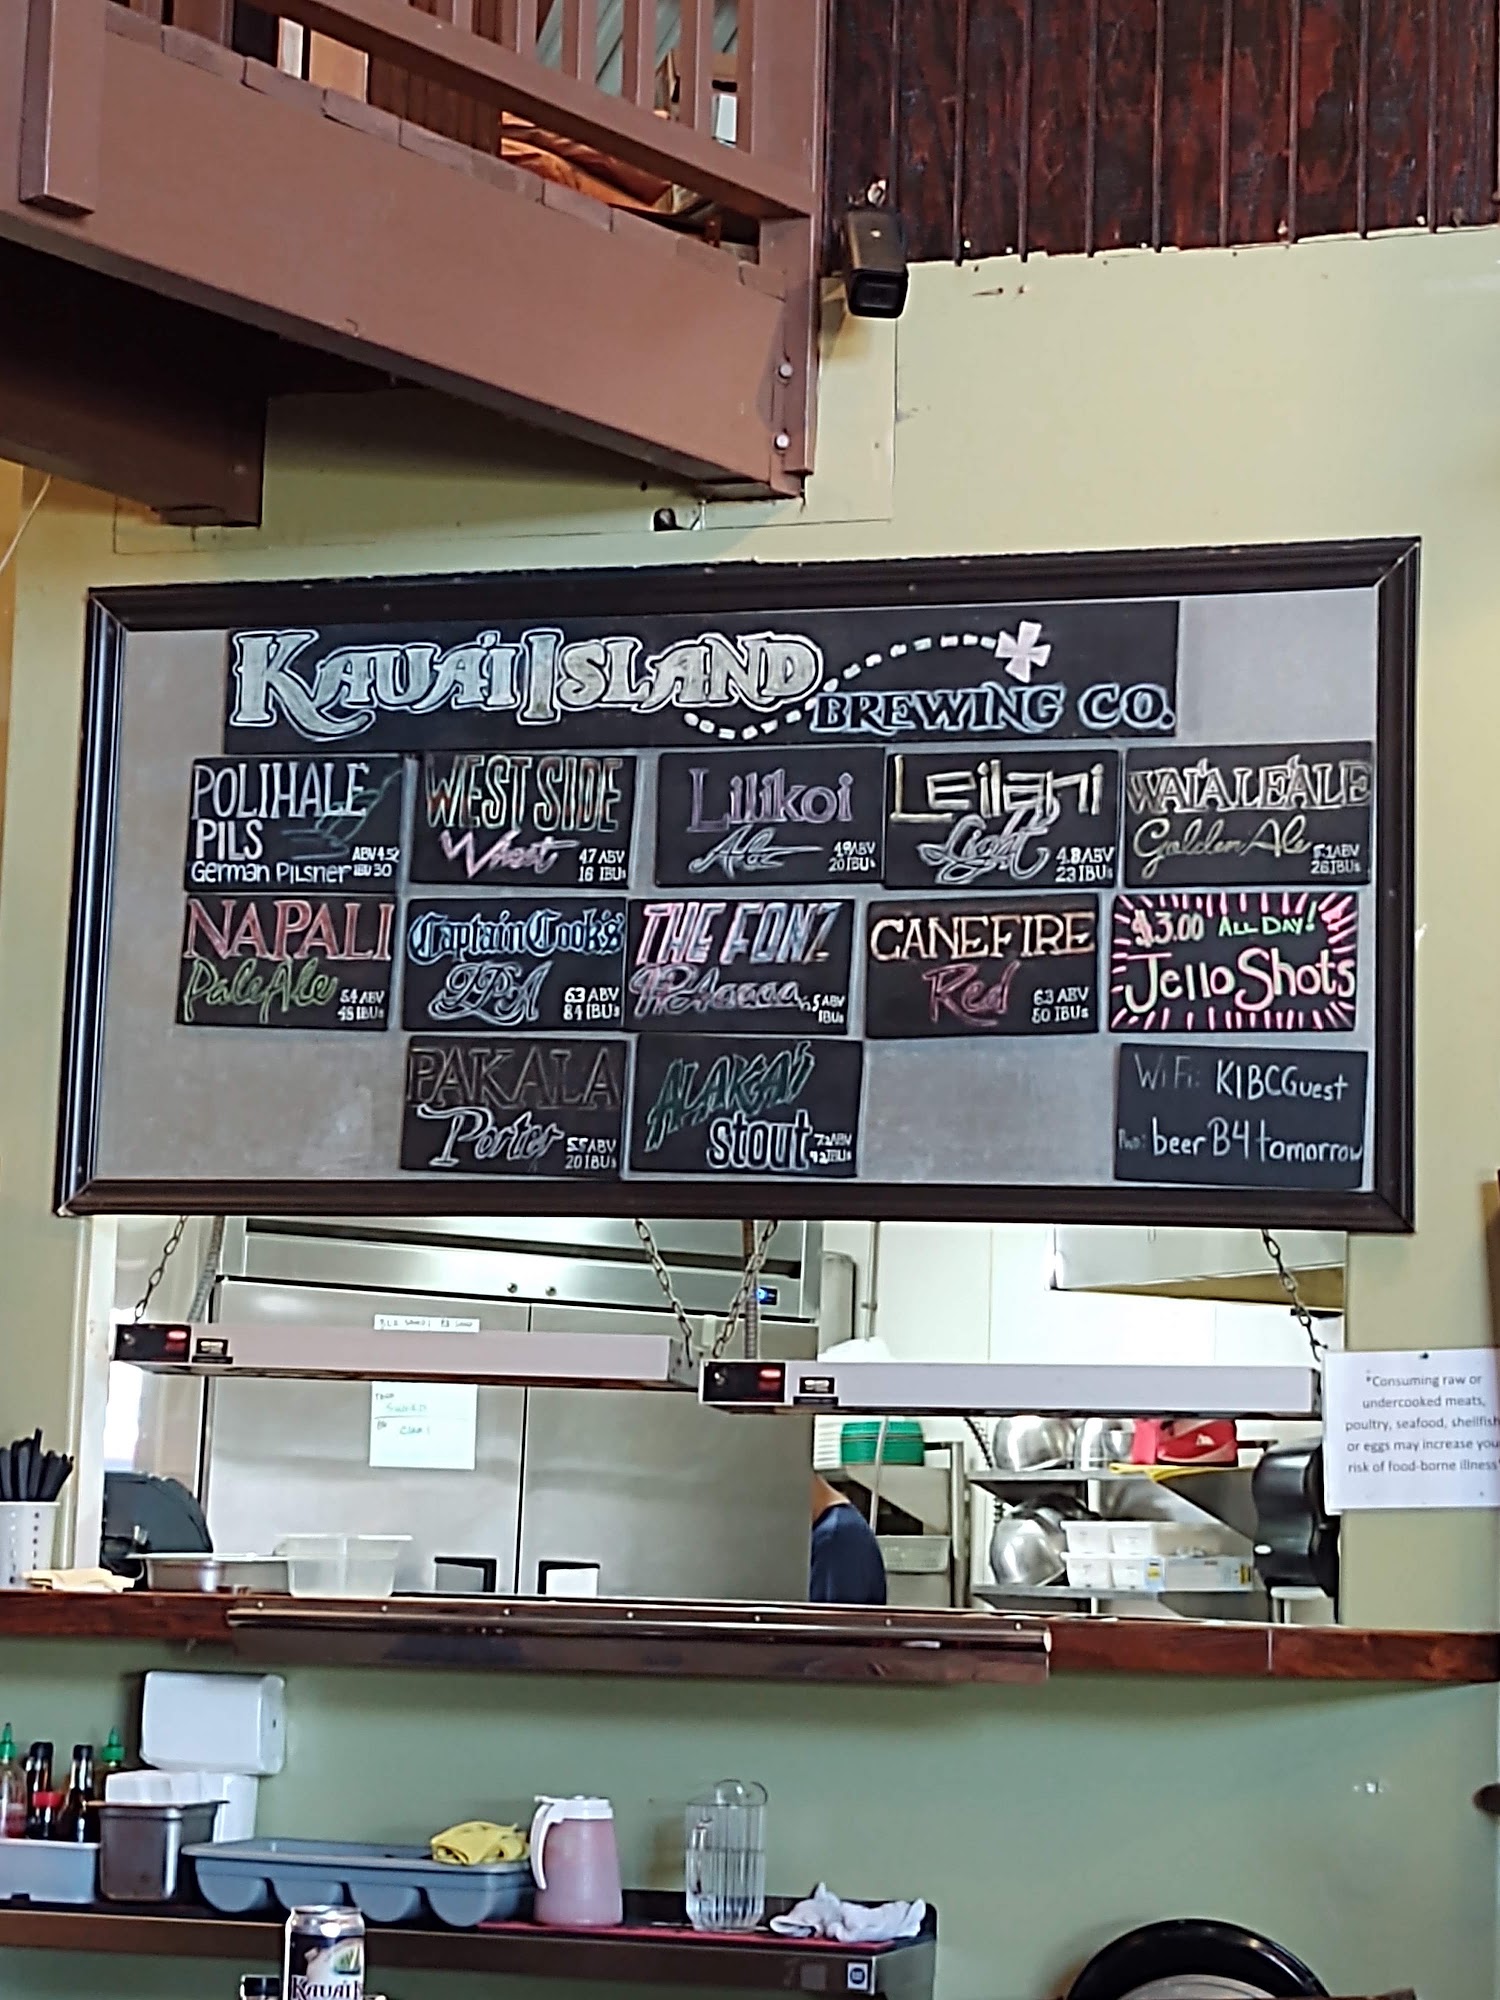 KAUA'I ISLAND
BREWING CO.
POLIHALE
PILS
German Pilsner
ABV 4.5%
IBU 30
WEST SIDE
Wheat
4.7 ABV
16 IBUs
Lilikoi
Ale
4.9 ABV
20 IBUs
Leilani
Light
4.8 ABV
23 IBUs
WAI'ALE'ALE
Golden Ale
5.1 ABV
26 IBUs
NAPALI
Pale Ale
5.4 ABV
45 IBUs
Captain Cook's
IPA
6.3 ABV
84 IBUs
THE FONZ
IPAaaaa
ABV
IBUs
CANEFIRE
Red
6.3 ABV
50 IBUs
$3.00 ALL DAY!
Jello Shots
PAKALA
Porter
5.5 ABV
20 IBUs
ALAKA'I
Stout
ABV
IBUs
WiFi: KIBCGuest
beerB4tomorrow
*Consuming raw or
undercooked meats,
poultry, seafood, shellfish
or eggs may increase you
risk of food-borne illness